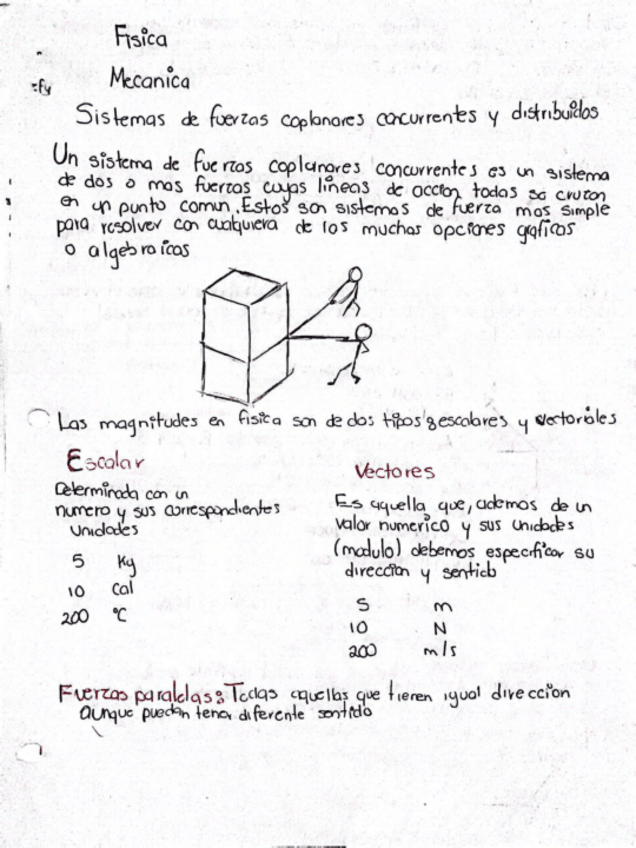 Fisica
=fy
Mecanica
Sistemas de fuerzas coplanares cocurrentes y distribuidos
Un sistema de fuerzas coplanares concurrentes es un sistema
de dos o mas fuerzas cuyas lineas de accion todas se cruzan
en un punto comun. Estos son sistemas de fuerza mas simple
para resolver con cualquiera de los muchas opciones graficas
o algebraicas
Las magnitudes en fisica son de dos tipos: escalares y vectoriales
Escalar
Determinada con un
numero y sus correspondientes
unidades
5 Kg
10 Cal
200 °C
Vectores
Es aquella que, ademas de un
valor numerico y sus unidades
(modulo) debemos especificar su
direccion y sentido
5 m
10 N
200 m/s
Fuerzas paralelas: Todas aquellas que tienen igual direccion
aunque puedan tener diferente sentido